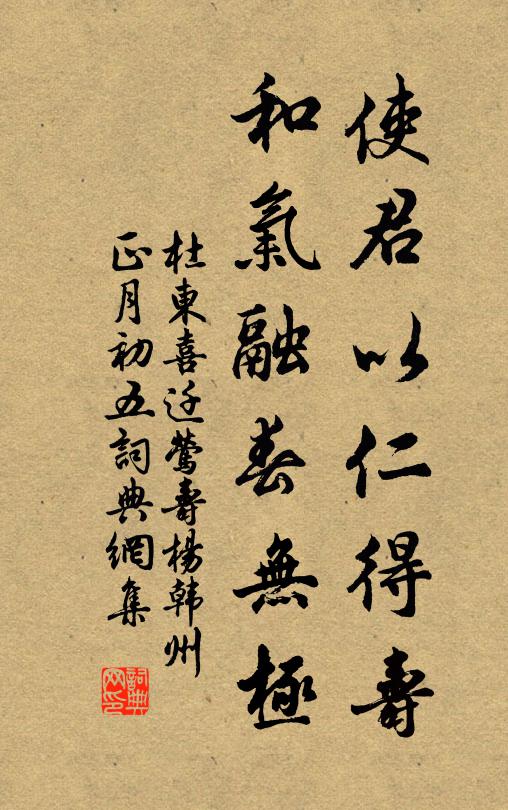 使君以仁得壽
和氣融春無極
杜東喜迁鶯壽楊韩州
正月初五詞典網集
詞典网印